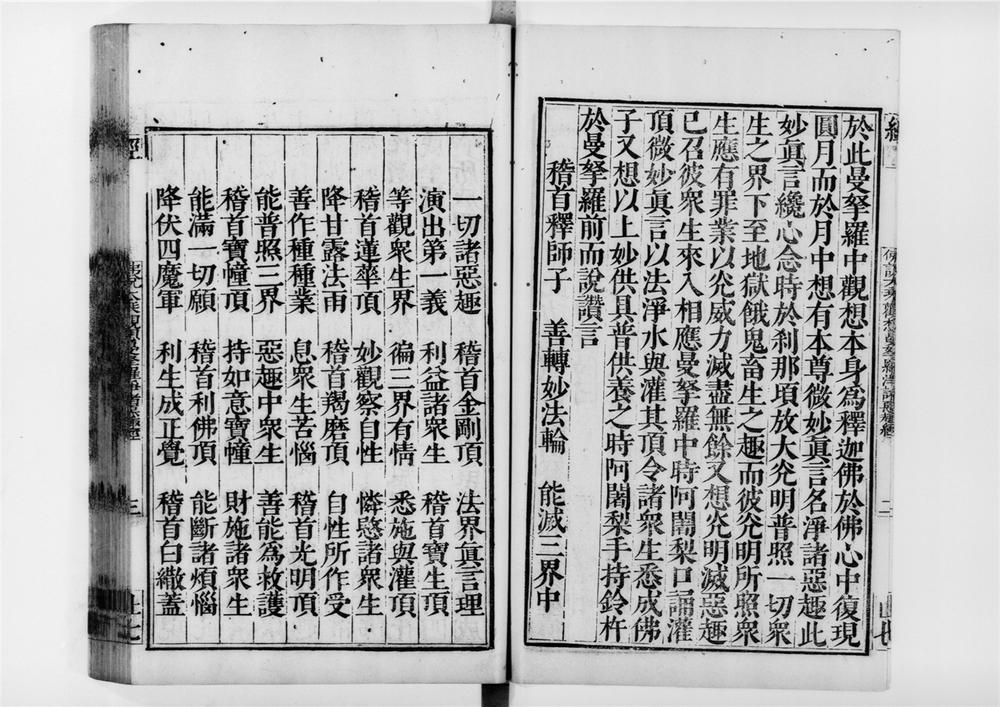 於此曼拏羅中觀想本身爲釋迦佛於佛心中復現
圓月而於月中想有本尊微妙眞言名淨諸惡趣此
妙眞言纔心念時於刹那頃放大光明普照一切衆
生之界下至地獄餓鬼畜生之趣而彼光明所照衆
生應有罪業以光威力滅盡無餘又想光明滅惡趣
已召彼衆生來入相應曼拏羅中時阿闍梨口誦灌
頂微妙眞言以法淨水與灌其頂令諸衆生悉成佛
子又想以上妙供具普供養之時阿闍梨手持鈴杵
於曼拏羅前而說讚言
稽首釋師子 善轉妙法輪 能滅三界中
一切諸惡趣 稽首金剛頂 法界眞言理
演出第一義 利益諸衆生 稽首寶生頂
等觀衆生界 徧三界有情 悉施與灌頂
稽首蓮華頂 妙觀察自性 憐愍諸衆生
降甘露法雨 稽首羯磨頂 自性所作受
善作種種業 息衆生苦惱 稽首光明頂
能普照三界 惡趣中衆生 善能爲救護
稽首寶幢頂 持如意寶幢 財施諸衆生
能滿一切願 稽首利佛頂 能斷諸煩惱
降伏四魔軍 利生成正覺 稽首白繖蓋